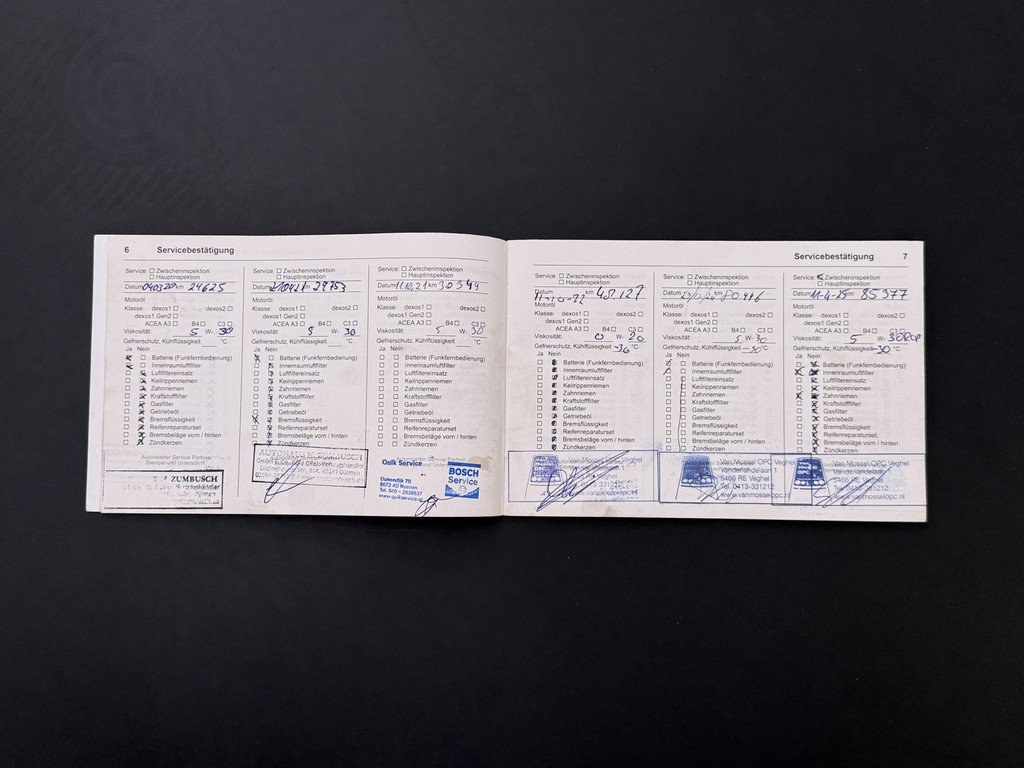 6 Servicebestätigung
Service: Zwischeninspektion
Hauptinspektion
Datum 040320 km 24625
Motoröl
Klasse: dexos1 dexos2
dexos1 Gen2
ACEA A3 B4 C3
Viskosität: 5 W- 30
Gefrierschutz, Kühlflüssigkeit °C
Ja Nein
Batterie (Funkfernbedienung)
Innenraumluftfilter
Luftfiltereinsatz
Keilrippenriemen
Zahnriemen
Kraftstofffilter
Gasfilter
Getriebeöl
Bremsflüssigkeit
Reifenreparaturset
Bremsbeläge vorn / hinten
Zündkerzen
Autorisierter Service Partner
Stempel und Unterschrift
ZUMBUSCH
Service: Zwischeninspektion
Hauptinspektion
Datum km 28753
Motoröl
Klasse: dexos1 dexos2
dexos1 Gen2
ACEA A3 B4 C3
Viskosität: 5 W- 30
Gefrierschutz, Kühlflüssigkeit °C
Ja Nein
Batterie (Funkfernbedienung)
Innenraumluftfilter
Luftfiltereinsatz
Keilrippenriemen
Zahnriemen
Kraftstofffilter
Gasfilter
Getriebeöl
Bremsflüssigkeit
Reifenreparaturset
Bremsbeläge vorn / hinten
Zündkerzen
ZUMBUSCH
Service: Zwischeninspektion
Hauptinspektion
Datum 11.10.21 km
Motoröl
Klasse: dexos1 dexos2
dexos1 Gen2
ACEA A3 B4 C3
Viskosität: 5 W- 30
Gefrierschutz, Kühlflüssigkeit °C
Ja Nein
Batterie (Funkfernbedienung)
Innenraumluftfilter
Luftfiltereinsatz
Keilrippenriemen
Zahnriemen
Kraftstofffilter
Gasfilter
Getriebeöl
Bremsflüssigkeit
Reifenreparaturset
Bremsbeläge vorn / hinten
Zündkerzen
Quik Service
BOSCH
Service
Tel. 040 - 2838637
Servicebestätigung 7
Service: Zwischeninspektion
Hauptinspektion
Datum 11-10-22 km 48.127
Motoröl
Klasse: dexos1 dexos2
dexos1 Gen2
ACEA A3 B4 C3
Viskosität: 0 W- 20
Gefrierschutz, Kühlflüssigkeit -36 °C
Ja Nein
Batterie (Funkfernbedienung)
Innenraumluftfilter
Luftfiltereinsatz
Keilrippenriemen
Zahnriemen
Kraftstofffilter
Gasfilter
Getriebeöl
Bremsflüssigkeit
Reifenreparaturset
Bremsbeläge vorn / hinten
Zündkerzen
Service: Zwischeninspektion
Hauptinspektion
Datum km 80416
Motoröl
Klasse: dexos1 dexos2
dexos1 Gen2
ACEA A3 B4 C3
Viskosität: 5 W- 30
Gefrierschutz, Kühlflüssigkeit -30 °C
Ja Nein
Batterie (Funkfernbedienung)
Innenraumluftfilter
Luftfiltereinsatz
Keilrippenriemen
Zahnriemen
Kraftstofffilter
Gasfilter
Getriebeöl
Bremsflüssigkeit
Reifenreparaturset
Bremsbeläge vorn / hinten
Zündkerzen
Van Mossel OPC Veghel
Vanderlandelaan 1
5466 RE Veghel
Tel. 0413-331212
www.vanmosselopc.nl
Service: Zwischeninspektion
Hauptinspektion
Datum 11-4-25 km 85377
Motoröl
Klasse: dexos1 dexos2
dexos1 Gen2
ACEA A3 B4 C3
Viskosität: 5 W- 30
Gefrierschutz, Kühlflüssigkeit -30 °C
Ja Nein
Batterie (Funkfernbedienung)
Innenraumluftfilter
Luftfiltereinsatz
Keilrippenriemen
Zahnriemen
Kraftstofffilter
Gasfilter
Getriebeöl
Bremsflüssigkeit
Reifenreparaturset
Bremsbeläge vorn / hinten
Zündkerzen
Van Mossel OPC Veghel
5466 RE Veghel
Tel. 0413-331212
www.vanmosselopc.nl